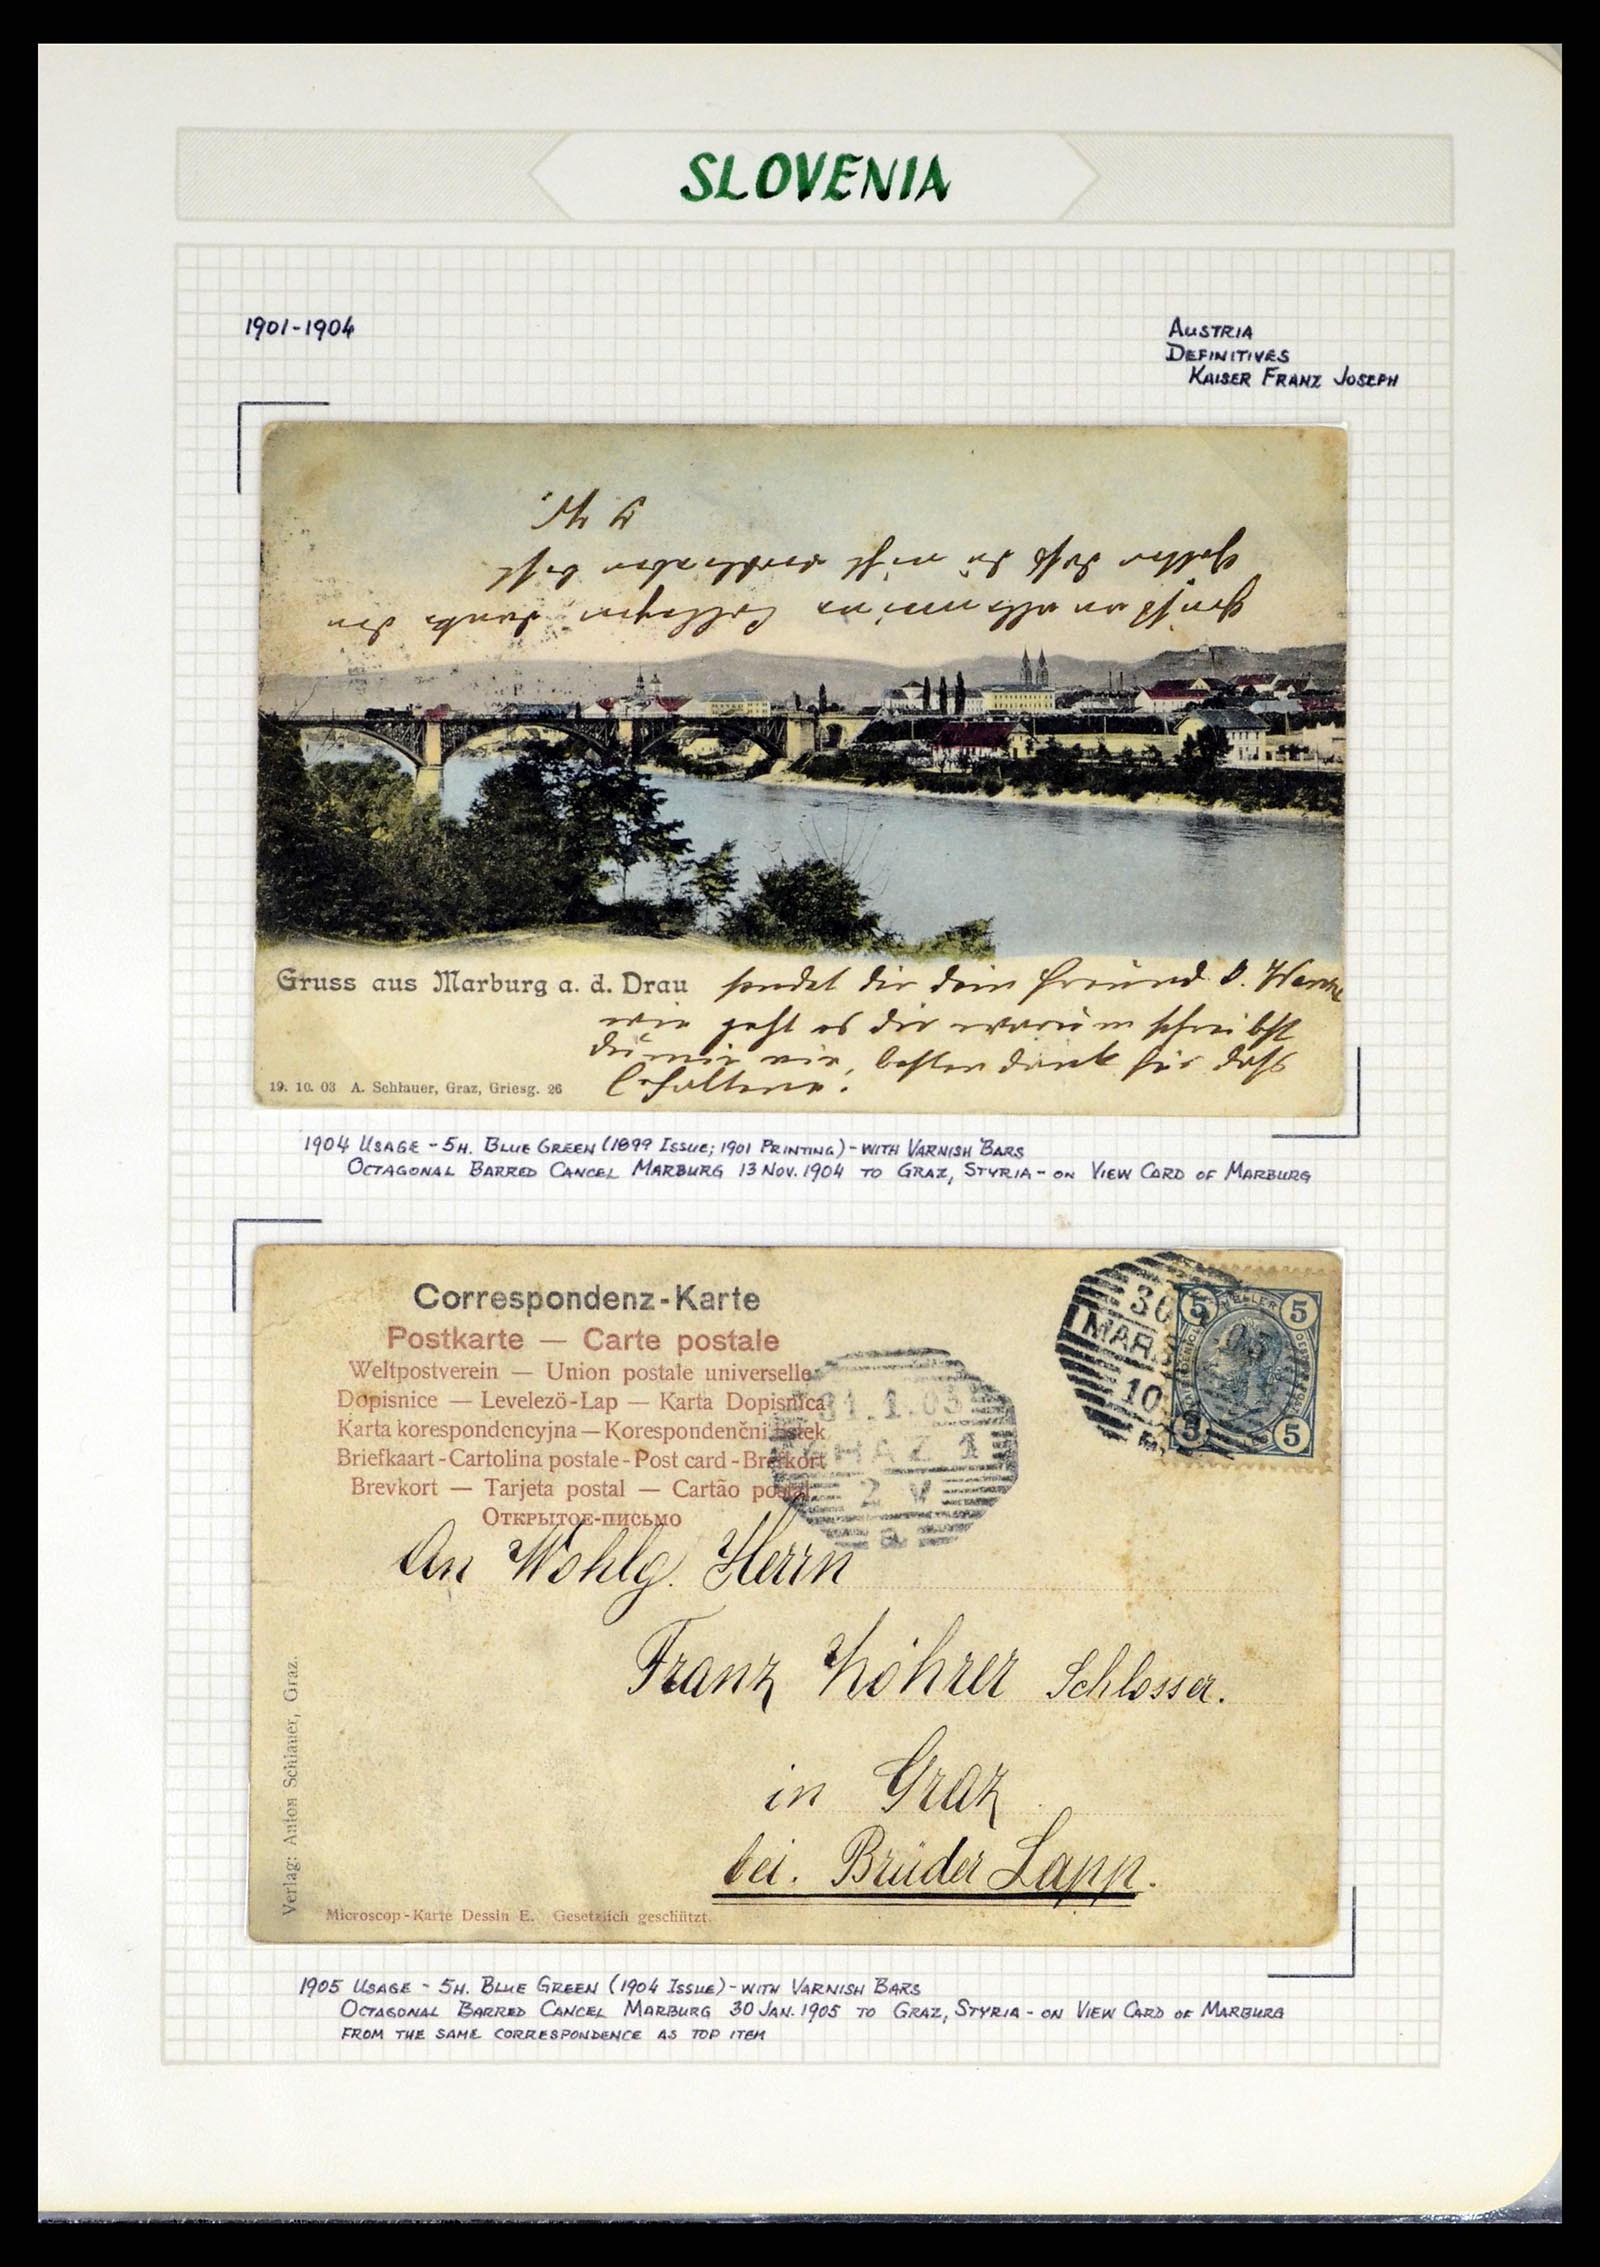 SLOVENIA
1901-1904
AUSTRIA
DEFINITIVES
KAISER FRANZ JOSEPH
Gruss aus Marburg a. d. Drau
sendet dir dein Freund
wie geht es dir warum schreibst
du mir nie, besten dank für dass
Erhaltene.
19. 10. 03 A. Schlauer, Graz, Griesg. 26
1904 USAGE - 5H. BLUE GREEN (1899 ISSUE; 1901 PRINTING) - WITH VARNISH BARS
OCTAGONAL BARRED CANCEL MARBURG 13 NOV. 1904 TO GRAZ, STYRIA - ON VIEW CARD OF MARBURG
Correspondenz-Karte
Postkarte — Carte postale
Weltpostverein — Union postale universelle
Dopisnice — Levelezö-Lap — Karta Dopisnica
Karta korespondencyjna — Korespondenčni listek
Briefkaart - Cartolina postale - Post card - Brefkort
Brevkort — Tarjeta postal — Cartão postal
Открытое-письмо
30
MAR
10
5 HELLER 5
5 5
31.1.05
GRAZ 1
2 V
a
An Wohlg. Herrn
Franz Köhrer Schlosser.
in Graz
bei. Brüder Lapp.
Verlag: Anton Schlauer, Graz.
Microscop-Karte Dessin E. Gesetzlich geschützt.
1905 USAGE - 5H. BLUE GREEN (1904 ISSUE) - WITH VARNISH BARS
OCTAGONAL BARRED CANCEL MARBURG 30 JAN. 1905 TO GRAZ, STYRIA - ON VIEW CARD OF MARBURG
FROM THE SAME CORRESPONDENCE AS TOP ITEM